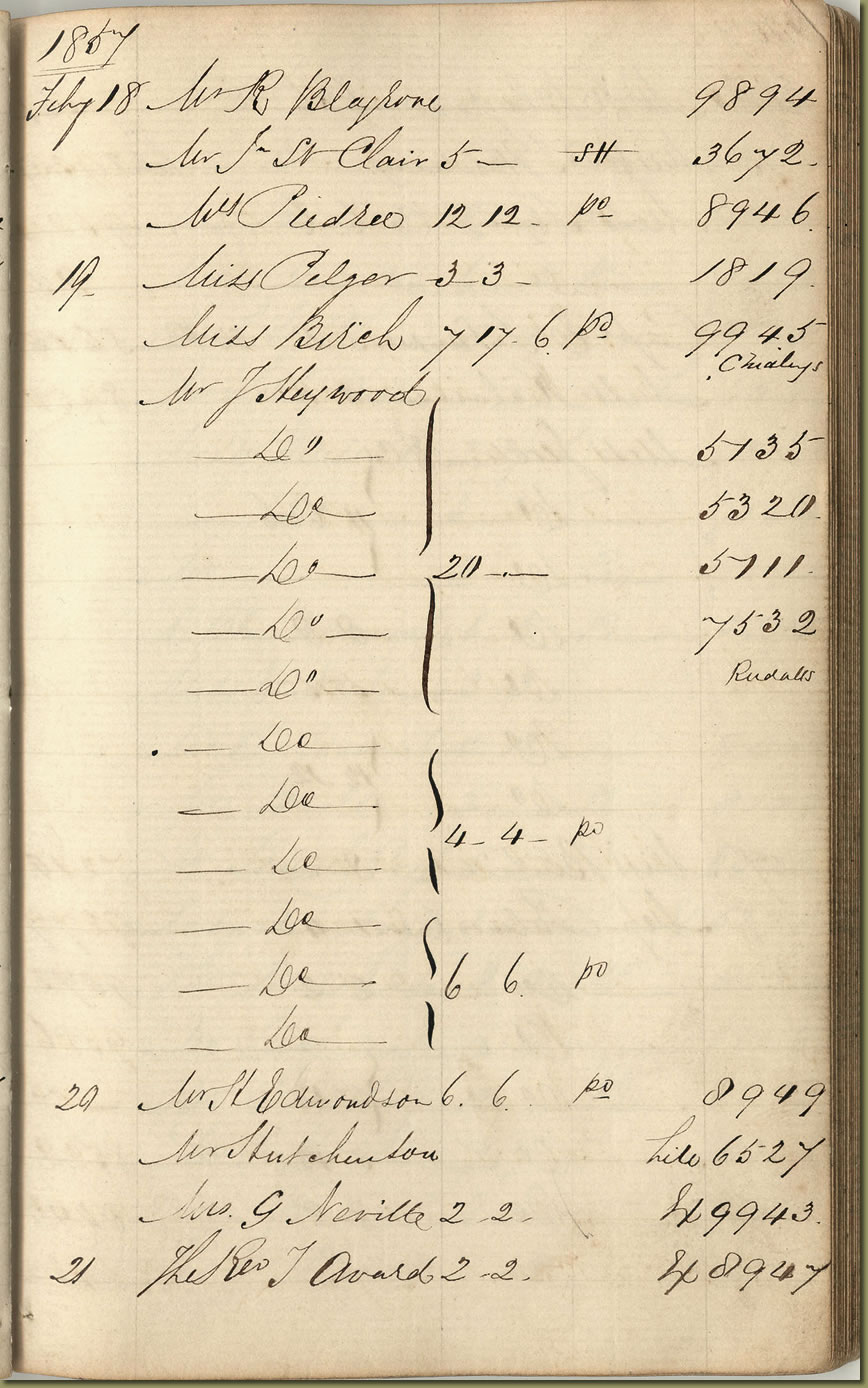 1857
Feby 18 Mr R Blagrove 9894
Mr Jn St Clair 5 — SH 3672.
Mrs Piedree 12 12 - po 8946.
19 Miss Pelger 3 3 - 1819.
Miss Birch 7 17. 6. po 9945
Mr J Heywood Chidleys
— Do — 5135
— Do — 5320.
— Do — 20 - . — 5111.
— Do — 7532
— Do — Rudalls
— Do —
— Do —
4 - 4 - po
— Do —
— Do —
— Do — 6 6. po
— Do —
20 Mr H Edmondson 6. 6. po 8949
Mr Hutchinson 6527
Mrs. G Neville 2 - 2 - Ex 9943.
21 The Rev J Award 2 - 2. Ex 8947